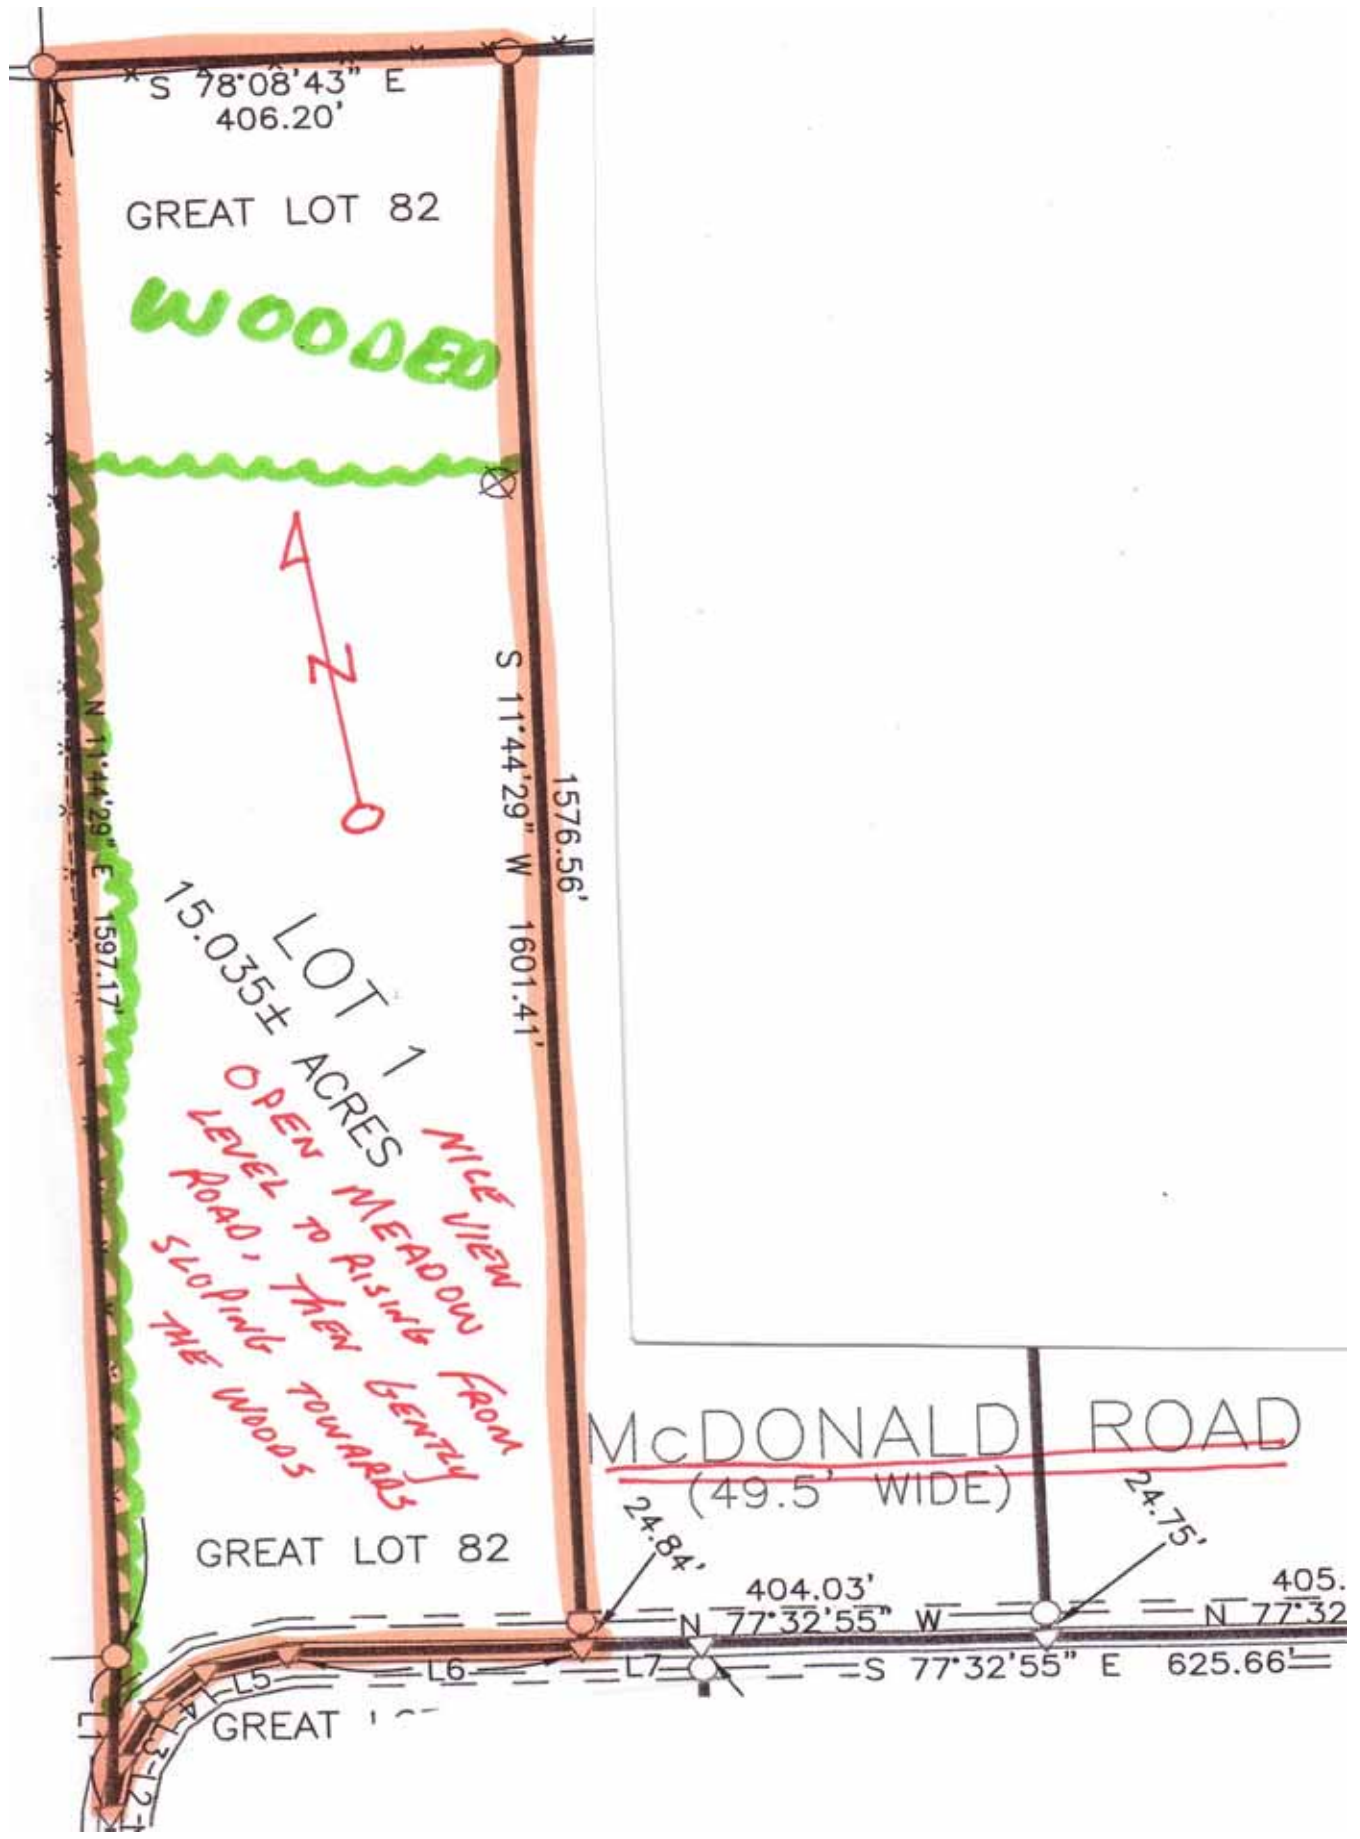 S 78°08'43" E
406.20'
GREAT LOT 82
WOODED
N
S 11°44'29" W 1601.41'
1576.56'
N 11°44'29" E 1597.17'
LOT 1
15.035± ACRES
NICE VIEW
OPEN MEADOW FROM
LEVEL TO RISING
ROAD, THEN GENTLY
SLOPING TOWARDS
THE WOODS
McDONALD ROAD
(49.5' WIDE)
24.84'
24.75'
GREAT LOT 82
404.03'
N 77°32'55" W
405.
N 77°32
L6
L7
S 77°32'55" E 625.66'
L5
L4
L3
L2
L1
GREAT